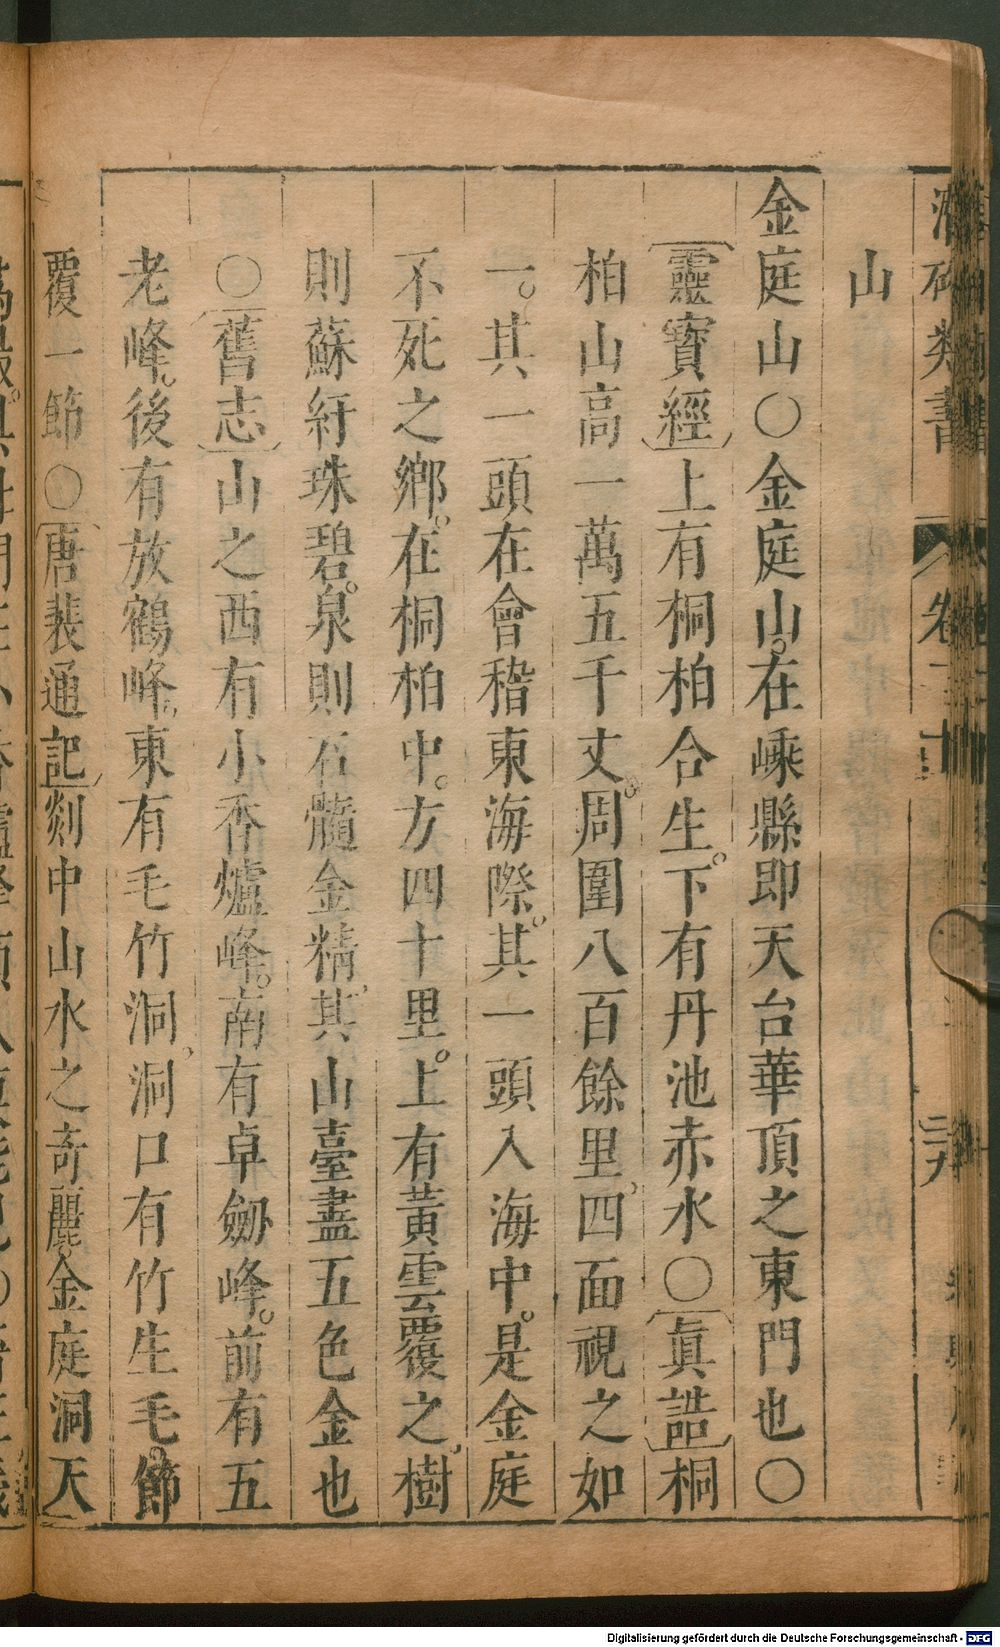 類書 卷
山
金庭山〇金庭山。在嵊縣即天台華頂之東門也〇
靈寶經上有桐柏合生。下有丹池赤水〇眞誥桐
柏山高一萬五千丈。周圍八百餘里、四面視之如
一。其一頭在會稽東海際。其一頭入海中。是金庭
不死之鄉。在桐柏中。方四十里。上有黃雲覆之、樹
則蘇紆珠碧。泉則石髓金精、其山臺盡五色金也
〇舊志山之西有小香爐峰。南有卓劒峰。前有五
老峰。後有放鶴峰、東有毛竹洞、洞口有竹生毛。節
覆一節〇唐裴通記剡中山水之奇麗。金庭洞天
Digitalisierung gefördert durch die Deutsche Forschungsgemeinschaft - DFG